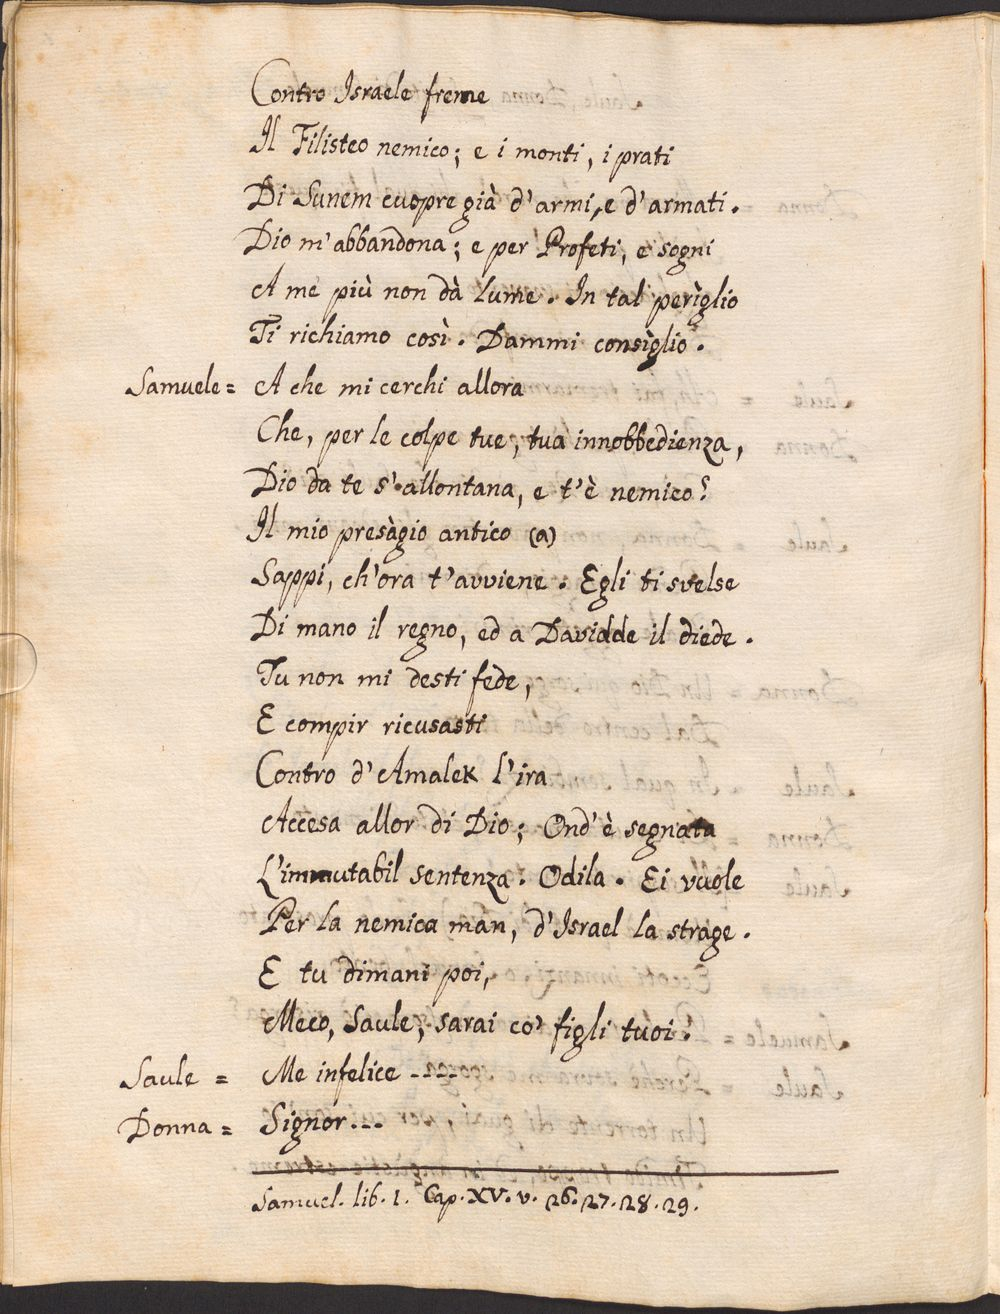 Contro Israele freme
Il Filisteo nemico; e i monti, i prati
Di Sunem cuopre già d'armi, e d'armati.
Dio m'abbandona; e per Profeti, e sogni
A me più non dà lume. In tal perìglio
Ti richiamo così. Dammi consìglio.
Samuele = A che mi cerchi allora
Che, per le colpe tue, tua innobbedienza,
Dio da te s'allontana, e t'è nemico?
Il mio presàgio antico (a)
Sappi, ch'ora t'avviene. Egli ti svelse
Di mano il regno, ed a Davidde il diede.
Tu non mi desti fede,
E compir ricusasti
Contro d'Amalek l'ira
Accesa allor di Dio; Ond'è segnata
L'immutabil sentenza. Odila. Ei vuole
Per la nemica man, d'Israel la strage.
E tu dimani poi,
Meco, Saule, sarai co' figli tuoi.
Saule = Me infelice ----
Donna = Signor...
Samuel. lib. 1. Cap. XV. v. 26. 27. 28. 29.